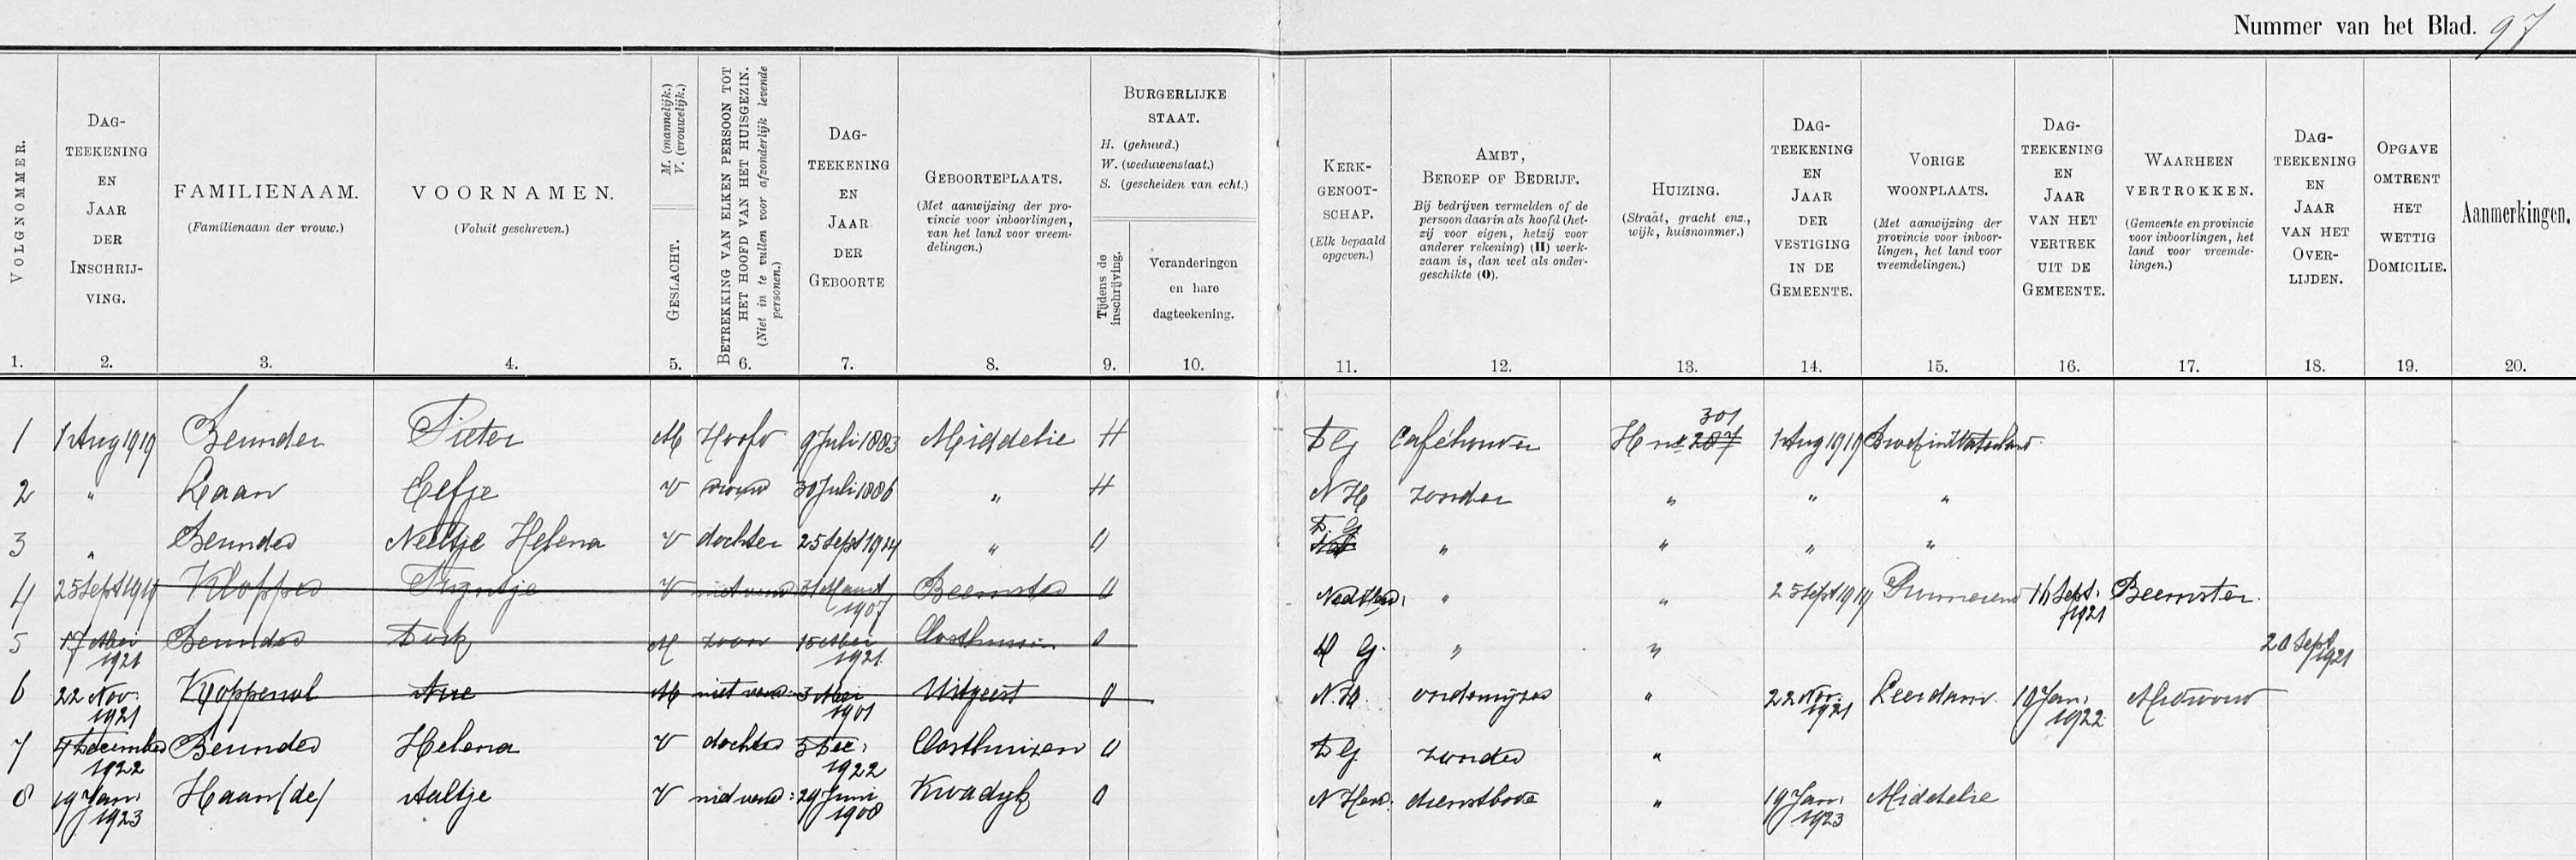 Nummer van het Blad. 97
VOLGNOMMER.
1.
DAG-
TEEKENING
EN
JAAR
DER
INSCHRIJ-
VING.
2.
FAMILIENAAM.
(Familienaam der vrouw.)
3.
VOORNAMEN.
(Voluit geschreven.)
4.
M. (mannelijk.)
V. (vrouwelijk.)
GESLACHT.
5.
BETREKKING VAN ELKEN PERSOON TOT
HET HOOFD VAN HET HUISGEZIN.
(Niet in te vullen voor afzonderlijk levende
personen.)
6.
DAG-
TEEKENING
EN
JAAR
DER
GEBOORTE
7.
GEBOORTEPLAATS.
(Met aanwijzing der pro-
vincie voor inboorlingen,
van het land voor vreem-
delingen.)
8.
BURGERLIJKE
STAAT.
H. (gehuwd.)
W. (weduwenstaat.)
S. (gescheiden van echt.)
Tijdens de
inschrijving.
9.
Veranderingen
en hare
dagteekening.
10.
KERK-
GENOOT-
SCHAP.
(Elk bepaald
opgeven.)
11.
AMBT,
BEROEP OF BEDRIJF.
Bij bedrijven vermelden of de
persoon daarin als hoofd (het-
zij voor eigen, hetzij voor
anderer rekening) (H) werk-
zaam is, dan wel als onder-
geschikte (O).
12.
HUIZING.
(Straat, gracht enz.,
wijk, huisnommer.)
13.
DAG-
TEEKENING
EN
JAAR
DER
VESTIGING
IN DE
GEMEENTE.
14.
VORIGE
WOONPLAATS.
(Met aanwijzing der
provincie voor inboor-
lingen, het land voor
vreemdelingen.)
15.
DAG-
TEEKENING
EN
JAAR
VAN HET
VERTREK
UIT DE
GEMEENTE.
16.
WAARHEEN
VERTROKKEN.
(Gemeente en provincie
voor inboorlingen, het
land voor vreemde-
lingen.)
17.
DAG-
TEEKENING
EN
JAAR
VAN HET
OVER-
LIJDEN.
18.
OPGAVE
OMTRENT
HET
WETTIG
DOMICILIE.
19.
Aanmerkingen.
20.
1 1 Aug 1919 Beunder Pieter M Hoofd 9 Juli 1883 Middelie H DG Caféhouder H no 287 301 1 Aug 1919 Broek in Waterland
2 " Laan Eefje V vrouw 30 Juli 1886 " H NH zonder " " "
3 " Beunder Neeltje Helena V dochter 25 Sept 1914 " O D. G " " " "
4 25 Sept 1919 Klopper Trijntje V niet verw 31 Maart 1907 Beemster O Ned Herv. " " 25 Sept 1919 Purmerend 16 Sept. 1921 Beemster.
5 17 Mei 1921 Beunder Dirk M zoon 15 Mei 1921 Oosthuizen O D G. " " 20 Sept 1921
6 22 Nov. 1921 Arie M niet verw. 3 Mei 1901 Uitgeest O N.H. onderwijzer " 22 Nov. 1921 Leerdam 19 Jan. 1922 Midwoud
7 7 December 1922 Beunder Helena V dochter 5 Dec. 1922 Oosthuizen O DG. zonder "
8 19 Jan. 1923 Haan (de) Aaltje V niet verw: 29 Juni 1908 Kwadijk O N Herv. dienstbode " 19 Jan. 1923 Middelie